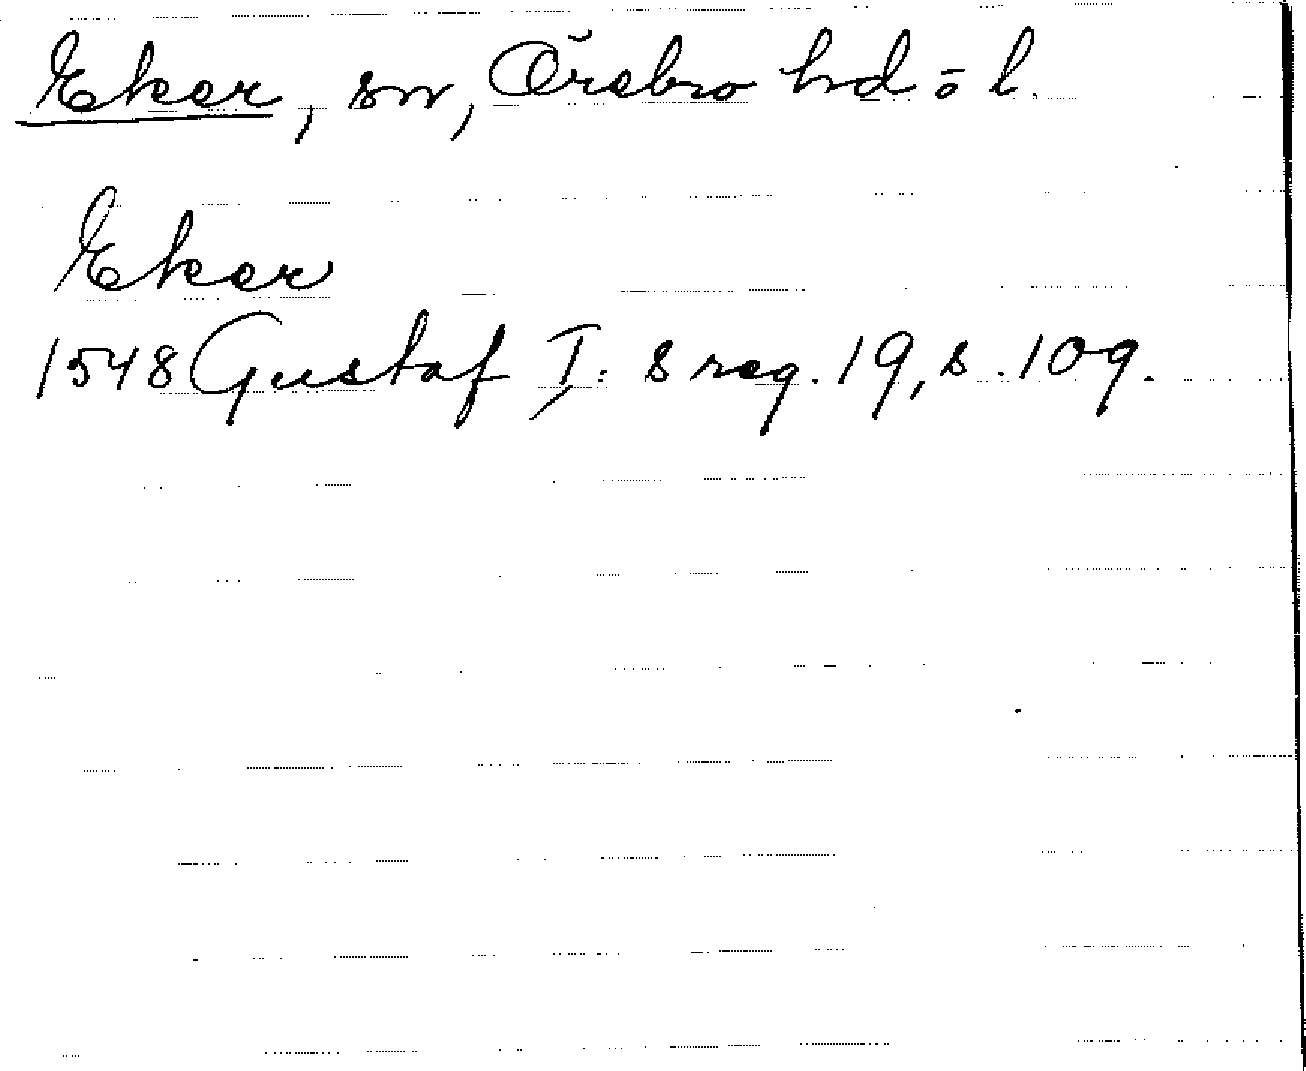 Eker, sn, Örebro hd o l.
Eker
1548 Gustaf I:s reg. 19, s. 109.